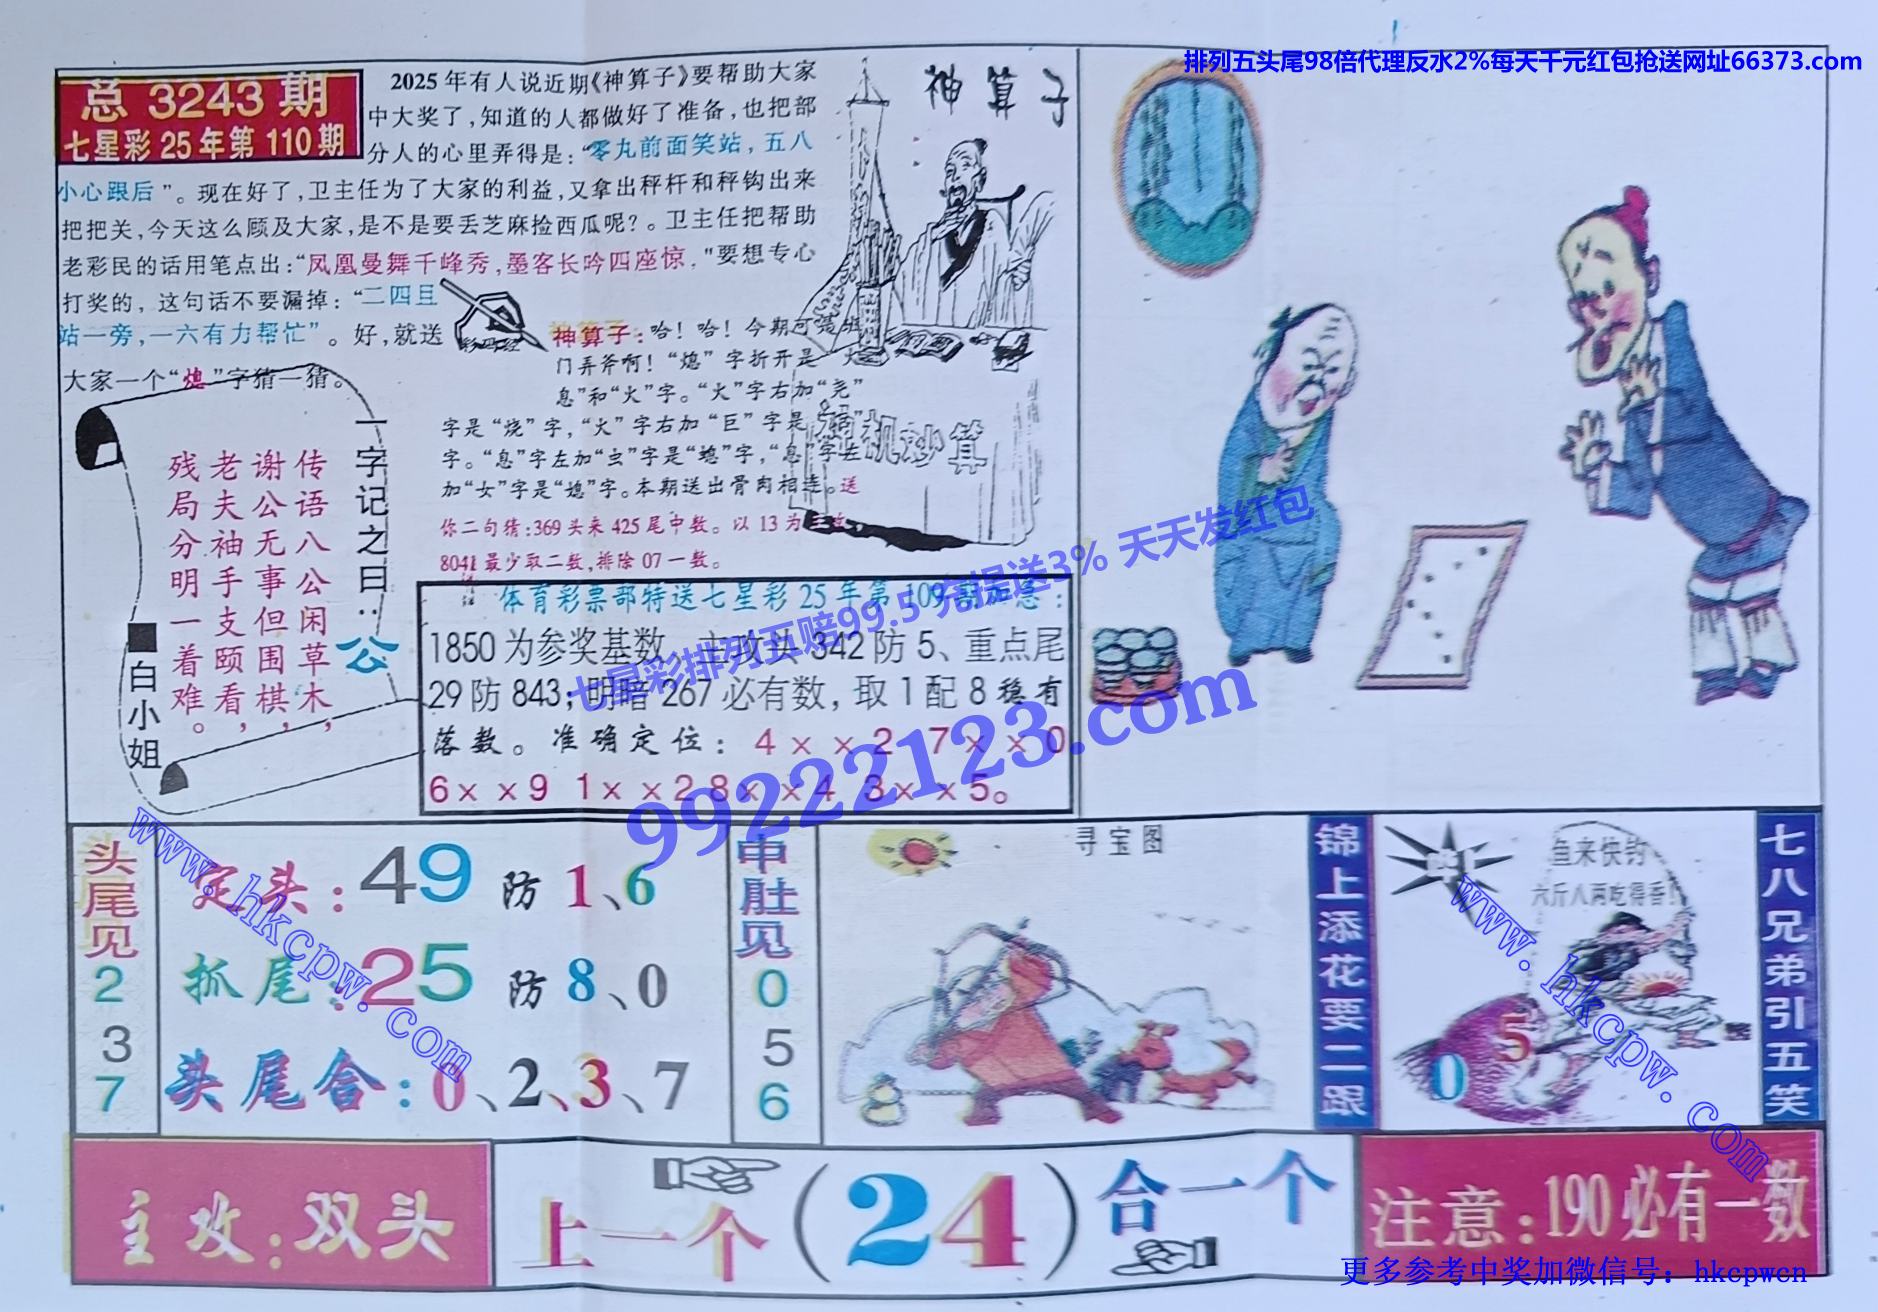 排列五头尾98倍代理反水2%每天千元红包抢送网址66373.com
总 3243 期
七星彩25年第110期
2025年有人说近期《神算子》要帮助大家
中大奖了,知道的人都做好了准备,也把部
分人的心里弄得是:“零丸前面笑站,五八
小心跟后”。现在好了,卫主任为了大家的利益,又拿出秤杆和秤钩出来
把把关,今天这么顾及大家,是不是要丢芝麻捡西瓜呢?。卫主任把帮助
老彩民的话用笔点出:“凤凰曼舞千峰秀,墨客长吟四座惊,"要想专心
打奖的,这句话不要漏掉:“二四且
站一旁,一六有力帮忙”。好,就送
大家一个“熄”字猜一猜。
神算子
神算子:哈!哈!今期可是班
门弄斧啊!“熄”字折开是“火
息”和“火”字。“火”字右加“尧”
字是“烧”字,“火”字右加“巨”字是
字。“息”字左加“虫”字是“螅”字,“息”字左
加“女”字是“媳”字。本期送出骨肉相连。送
你二句猜:369头来425尾中数。以13为主攻,
8041最少取二数,排除07一数。
神机妙算
一字记之曰:公
传语八公闲草木,
谢公无事但围棋,
老夫袖手支颐看,
残局分明一着难。
白小姐
体育彩票部特送七星彩25年第109期
1850为参奖基数、主攻头342防5、重点尾
29防843;明暗267必有数,取1配8稳有
落数。准确定位:4××2 7××0
6××9 1××2 8××4 3××5。
七星彩排列五赔99.5 充提送3% 天天发红包
99222123.com
头尾见
2
3
7
定头:49防1、6
抓尾:25防8、0
头尾合:0、2、3、7
中肚见
0
5
6
寻宝图
锦上添花要二跟
鱼来快钓
六斤八两吃得香!
0 5
七八兄弟引五笑
www.hkcpw.com
www.hkcpw.com
主攻:双头
上一个(24)合一个
注意:190必有一数
更多参考中奖加微信号:hkcpwcn